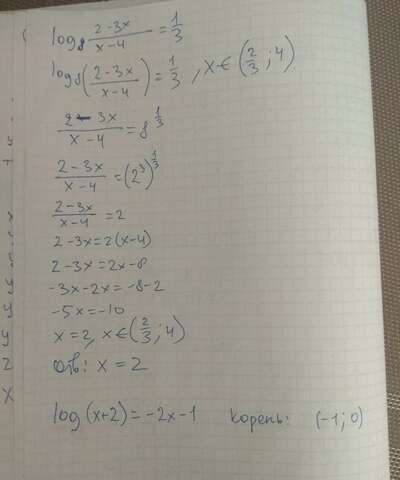 log₈ (2-3x)/(x-4) = 1/3
log₈((2-3x)/(x-4)) = 1/3, x∈(2/3; 4)
(2-3x)/(x-4) = 8^(1/3)
(2-3x)/(x-4) = (2³)^(1/3)
(2-3x)/(x-4) = 2
2-3x=2(x-4)
2-3x=2x-8
-3x-2x=-8-2
-5x=-10
x=2, x∈(2/3; 4)
Отв: x=2
log(x+2)=-2x-1 Корень: (-1;0)